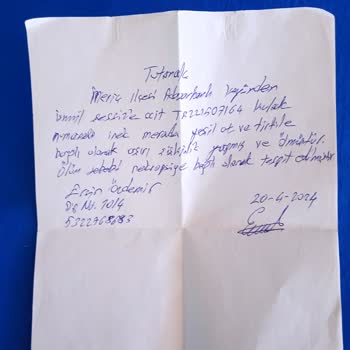 Tutanak
Meriç ilçesi Adasarhanlı köyünden
İsmail Sessiz'e ait TR221507164 kulak
n-maralı inek merada yeşil ot ve tirfile
bağlı olarak aşırı şişmiş ve ölmüştür.
Ölüm sebebi nekropsiye bağlı olarak tespit edilmiştir
Ersin Özdemir
Dip No. 7014
5322968683
20-4-2024